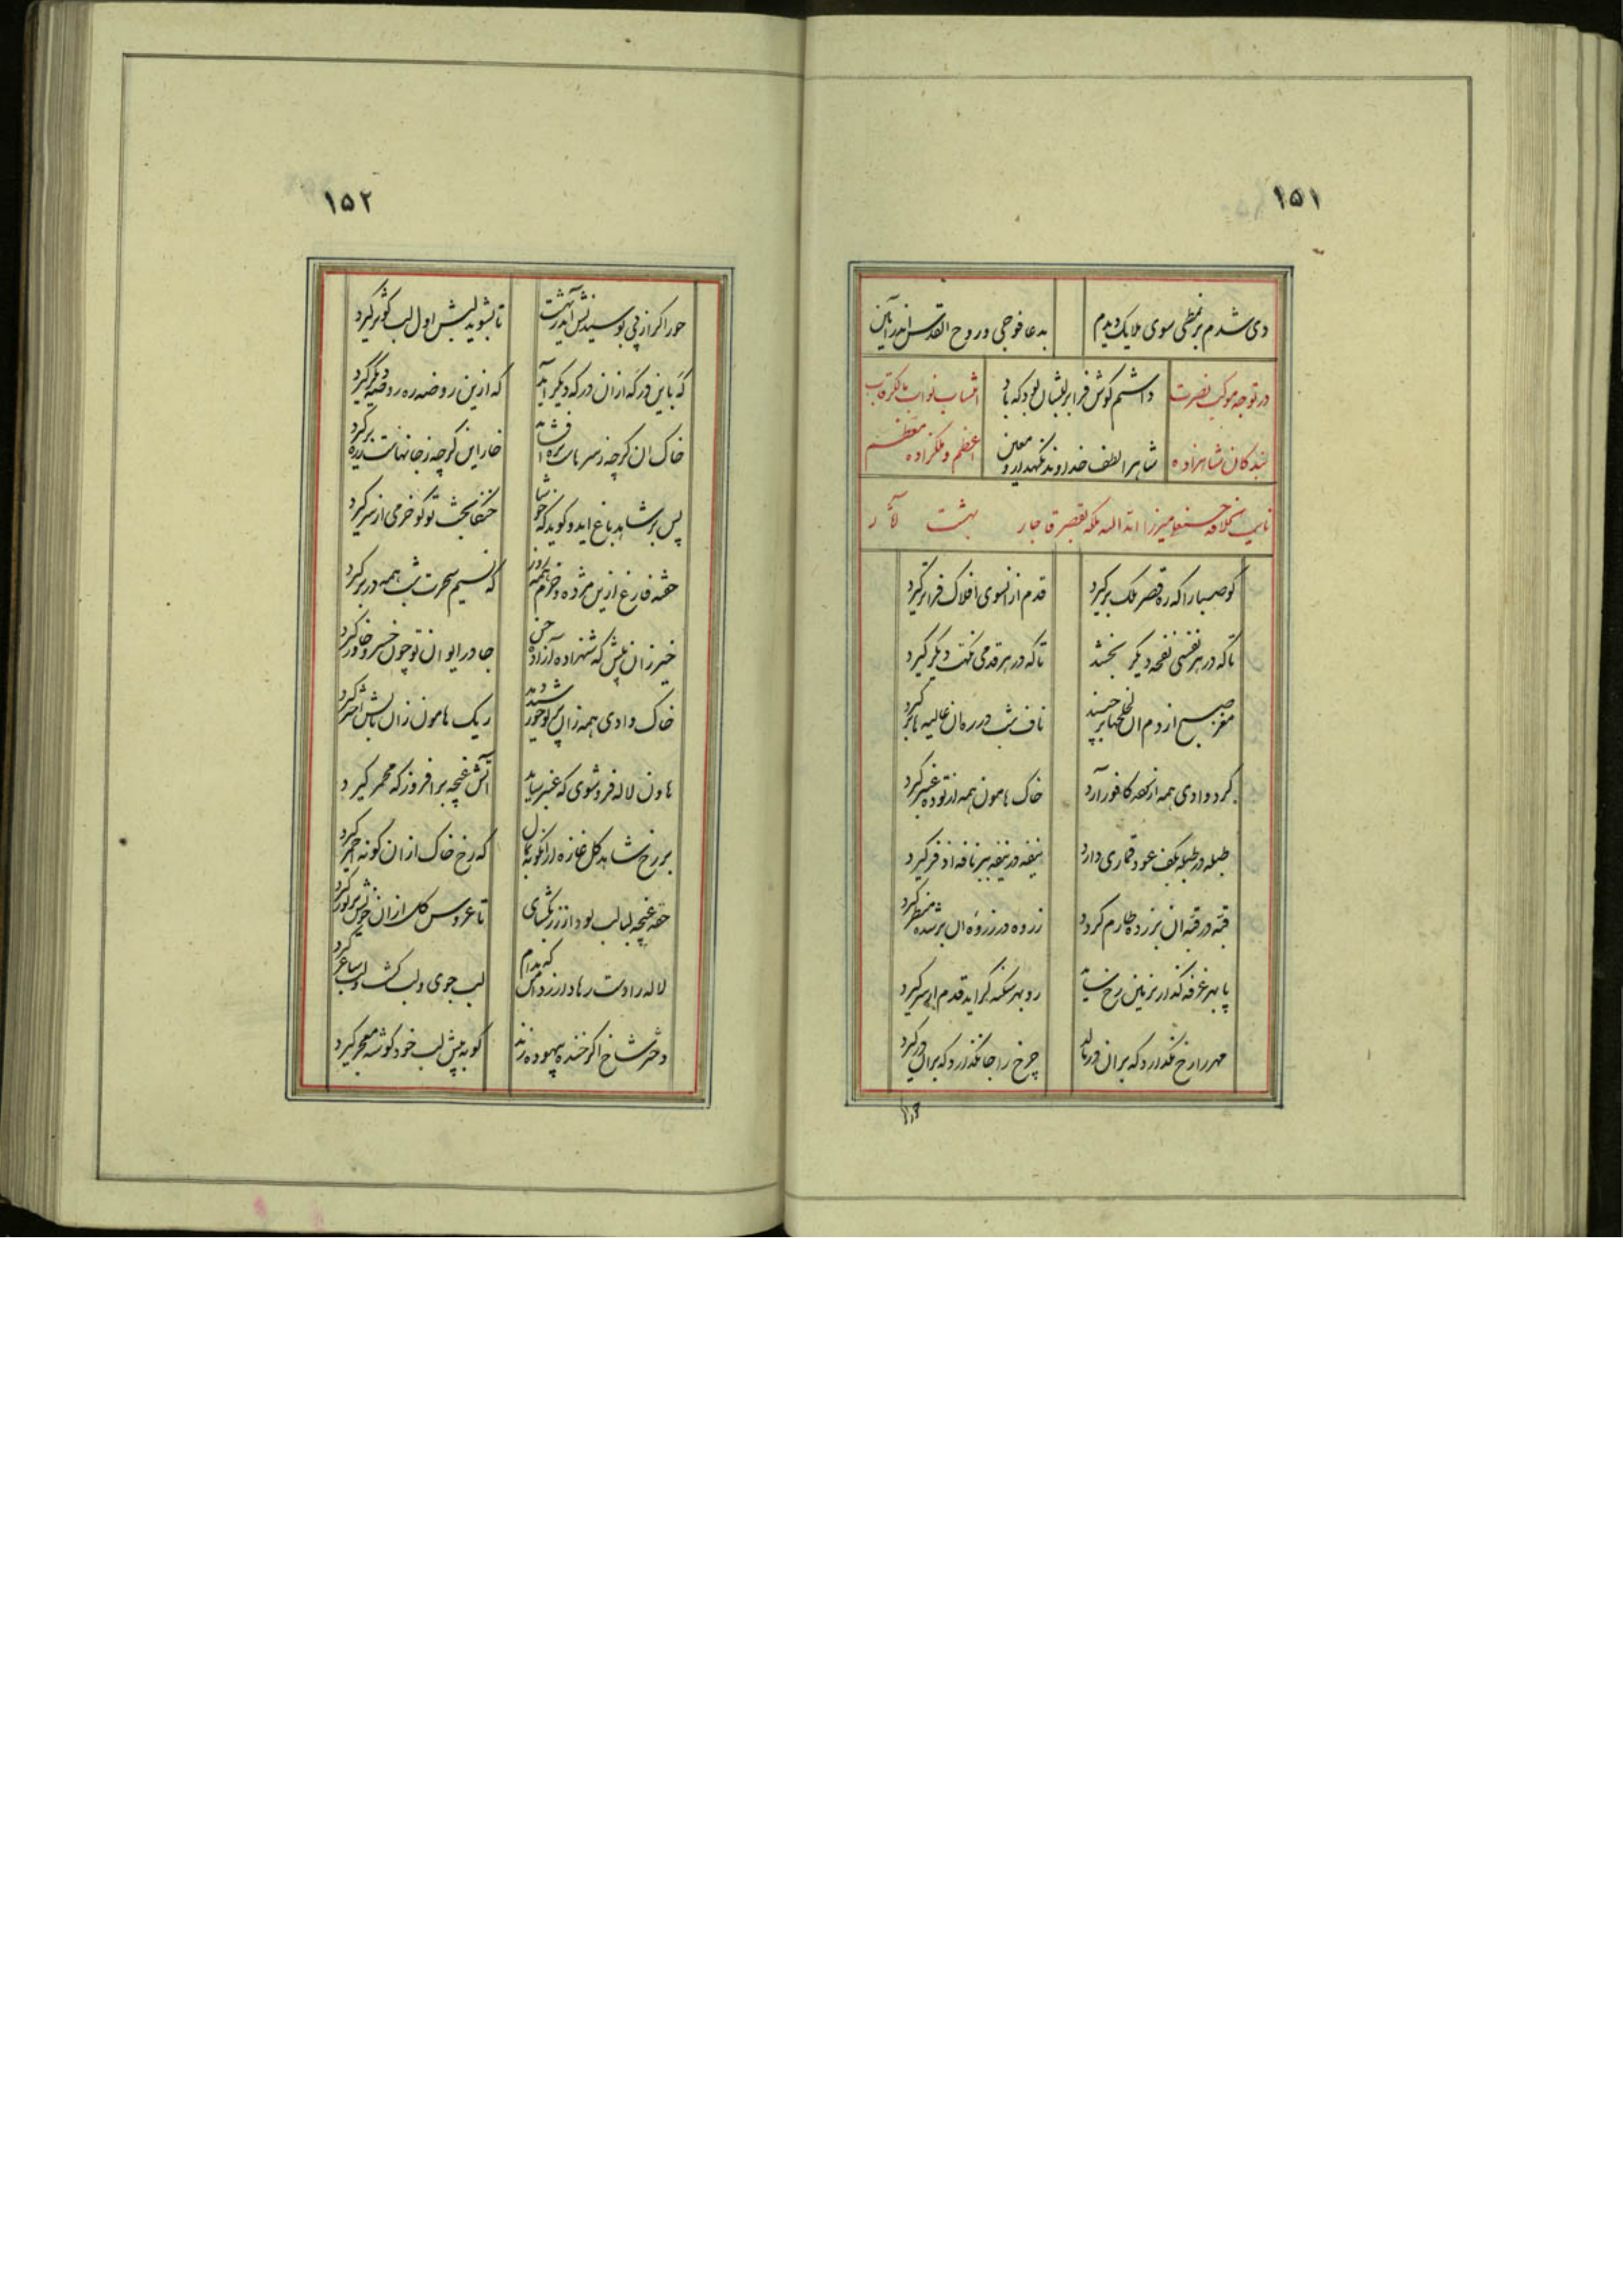 ۱۵۱
دی شدم بر نمطی سوی ملایک دیدم
بدعا فوجی و روح القدس اندر آئین
در توجه موکب نصرت
داشتم گوش فرا بر لبشان بود که با
انتساب نواب مالک رقاب
بندکان شاهزاده
شاه را لطف خداوند نکهدار و معین
اعظم و ملکزاده معظم
نایب حسنعلی میرزا بقصر قاجار بهشت
کو صبا را که ره قصر ملک برکیرد
قدم از انسوی افلاک فراتر کیرد
تا که در هر نفسی نفحه دیکر بخشد
تا که در هر قدمی نکهت دیکر کیرد
مغز صبح از دم ان لخلخها برخیزد
ناف شب در ره ان غالیه ها بر کیرد
کرد وادی همه از کافور آرد
خاک هامون همه از توده عنبر کیرد
طبله در طبله بکف عود قماری دارد
نیفه در نیفه ببر نافه اذفر کیرد
قبه در قبه ان بر زده طارم کردد
زروه در زروه ان بر شده منظر کیرد
پا بهر غرفه کذارد بزمین رخ ساید
رو بهر سکنه کراید قدم از سر کیرد
مهر را رخ نکذارد که بر ان در مالد
چرخ را جا نکذارد که بران در کیرد
۱۵۲
حور اکر از پی بوسیدنش آید ز بهشت
تا بشوید لبش اول لب کوثر کیرد
که باین در که از ان در که دیکر آید
که ازین روضه ره روضه دیکر کیرد
خاک ان کرچه ز سر هاست بره افشاند
خار این کرچه ز جانهاست ز ره برکیرد
پس بر شاهد باغ اید و کوید که خوشا
خنکا بخت تو کو خرمی از سر کیرد
خفته فارغ ازین مژده و خرم همه روز
که نسیم سحرت شب همه در بر کیرد
خیز زان پیش که شهزاده آزاده حسن
جا در ایوان تو چون خسرو خاور کیرد
خاک وادی همه زان بوی بخور شنود
ریک هامون زان تابش اخکر کیرد
هاون لاله فرو شوی که عنبر ساید
آتش غنچه برافروز که مجمر کیرد
بر رخ شاهد کل غازه ازانکونه بمال
که رخ خاک ازان کونه احمر کیرد
حقه غنچه لبالب بود از زر بکشای
تا عروس کل ازان خویش بزیور کیرد
لاله را دست رها دار ز دامن که مدام
لب جوی و لب کشت و لب ساغر کیرد
دختر شاخ اکر خنده بیهوده زند
کو به پیش لب خود کوشه معجر کیرد